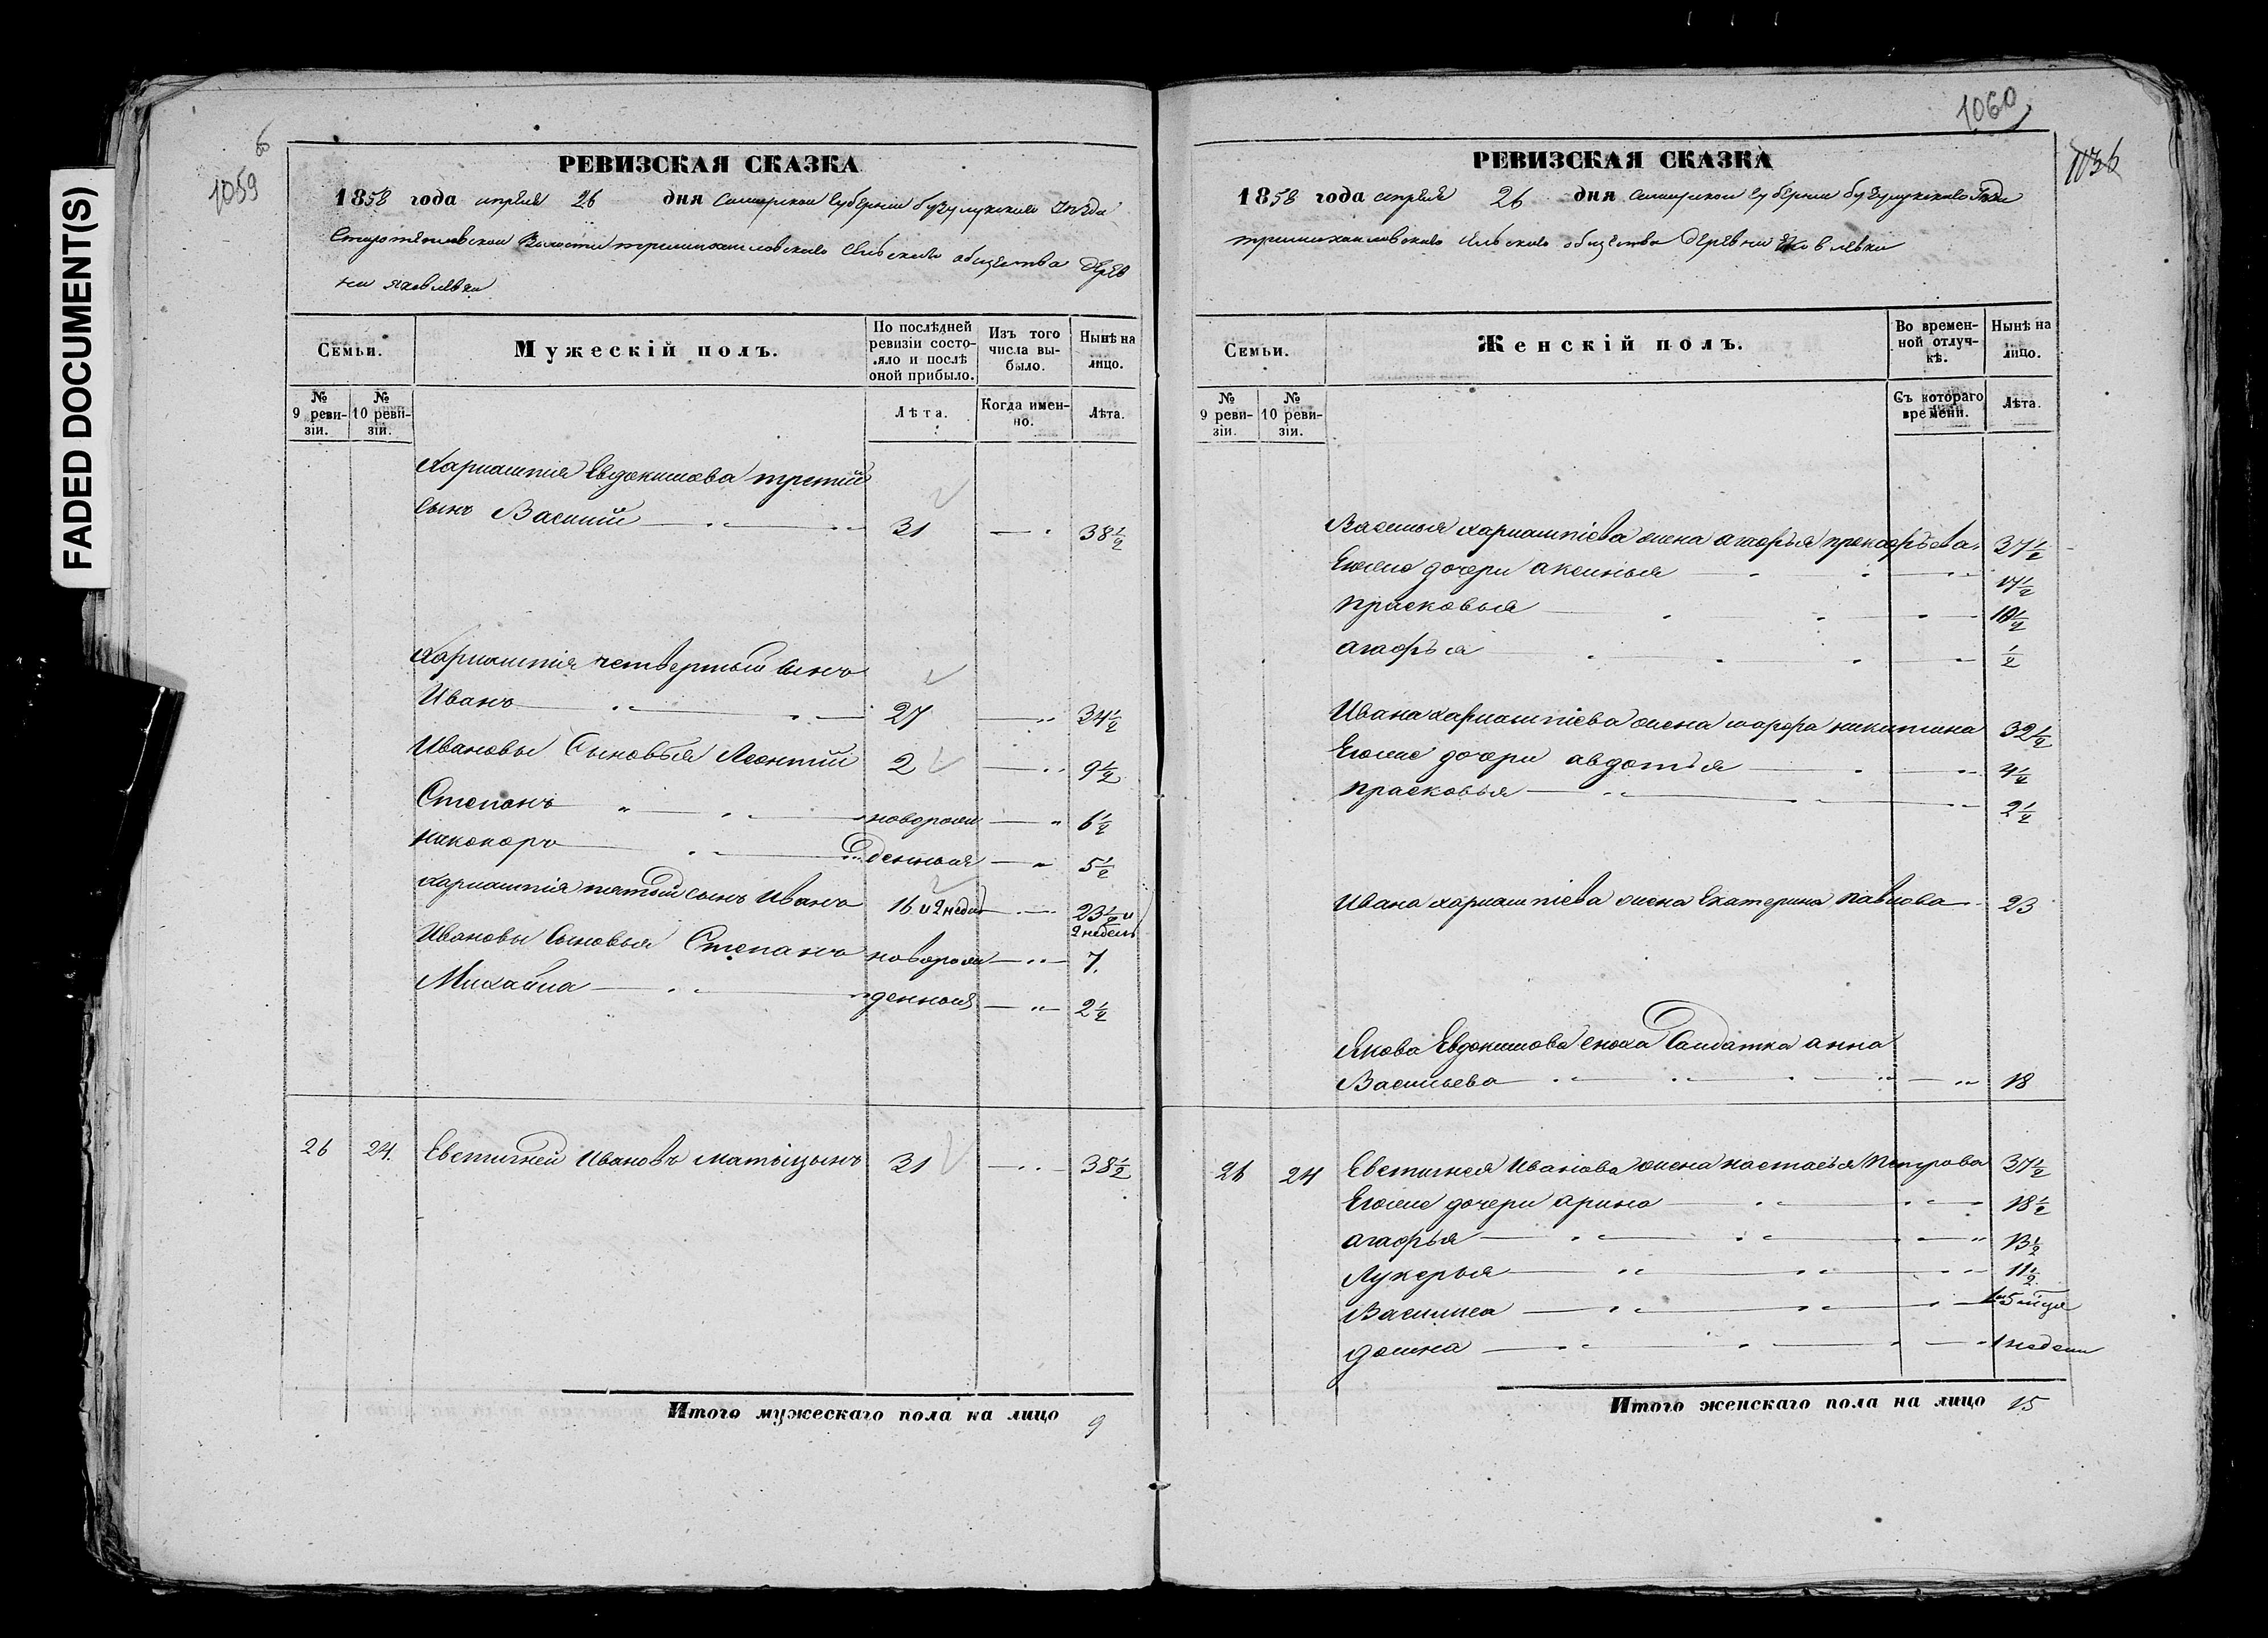 FADED DOCUMENT(S)
1059
об
РЕВИЗСКАЯ СКАЗКА
1858 года апреля 26 дня Самарской губернии бузулукского Уезда
Старотепловской Волости сельского общества дерев
ни яковлевки
Семьи.
Мужескій полъ.
По послѣдней ревизіи состояло и послѣ оной прибыло.
Изъ того числа выбыло.
Нынѣ на лицо.
№ 9 ревизіи.
№ 10 ревизіи.
Лѣта.
Когда именно.
Лѣта.
Харлампия Евдокимова третий
сынъ Василий 31 38½
Харлампия четвертый сынъ
Иванъ 27 34½
Ивановы Сыновья Леонтий 2 9½
Степанъ новорож 6½
никоноръ денныя 5½
харлампия пятый сынъ Иванъ 16 и 2 недел 23½ и
2 недель
Ивановы Сыновья Степанъ новорож 7.
Михайла денныя 2½
26 24. Евстигней Ивановъ матыцынъ 31 38½
Итого мужескаго пола на лицо 9
1060
1136
РЕВИЗСКАЯ СКАЗКА
1858 года апреля 26 дня Самарской губернии бузулукского уезда
сельского общества деревни яковлевки
Семьи.
Женскій полъ.
Во временной отлучкѣ.
Нынѣ на лицо.
№ 9 ревизіи.
№ 10 ревизіи.
Съ котораго времени.
Лѣта.
Василья харлампіева жена агафья прокофьева 37½
Егоже дочери аксинья 17½
прасковья 10½
агафья ½
Ивана харлампіева жена марфа никитина 32½
Егоже дочери авдотья 4½
прасковья 2½
Ивана харлампіева жена Екатерина павлова 23
Якова Евдокимова сноха Салдатка анна
Васильева 18
26 24 Евстигнея Иванова жена настасья Петрова 37½
Егоже дочери арина 18½
агафья 13½
Лукерья 11½
Василиса 5 мця
домна 1 недели
Итого женскаго пола на лицо 15